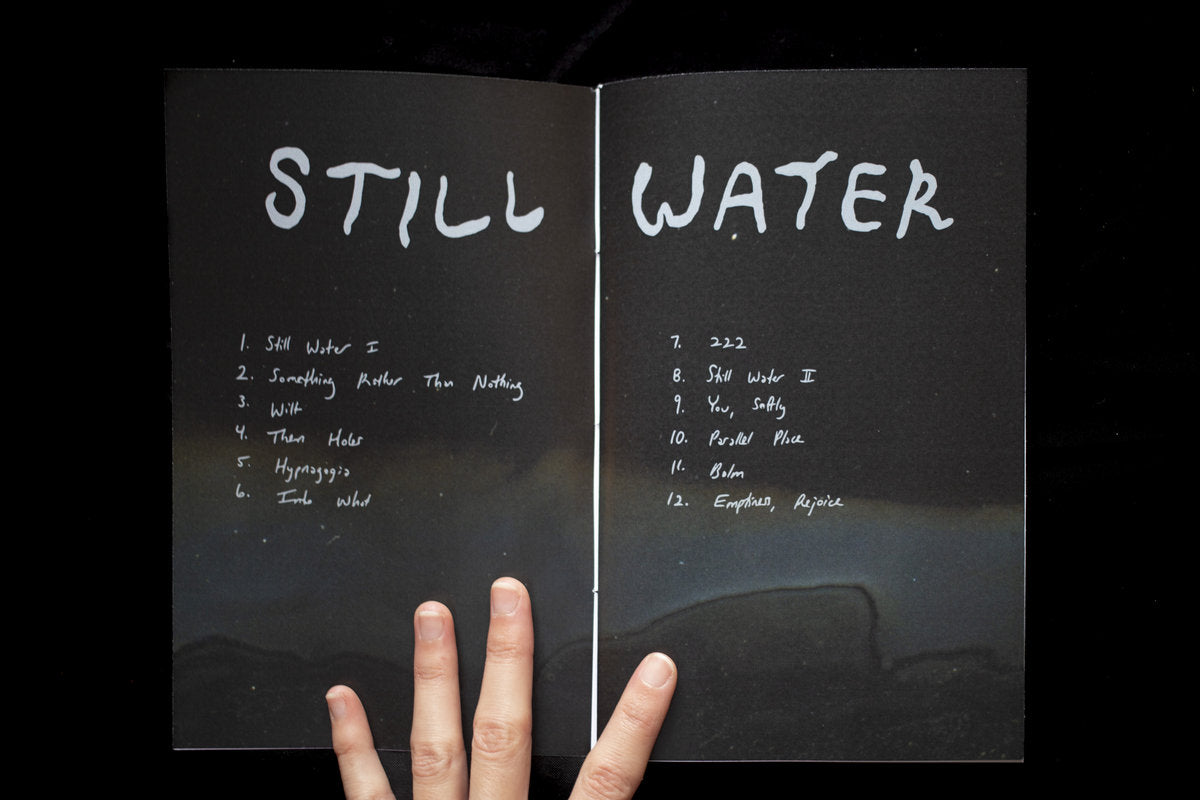 STILL WATER
1. Still Water I
2. Something Rather Than Nothing
3. Wilt
4. Them Holes
5. Hypnagogia
6. Into What
7. 222
8. Still Water II
9. You, Softly
10. Parallel Place
11. Balm
12. Emptiness, Rejoice